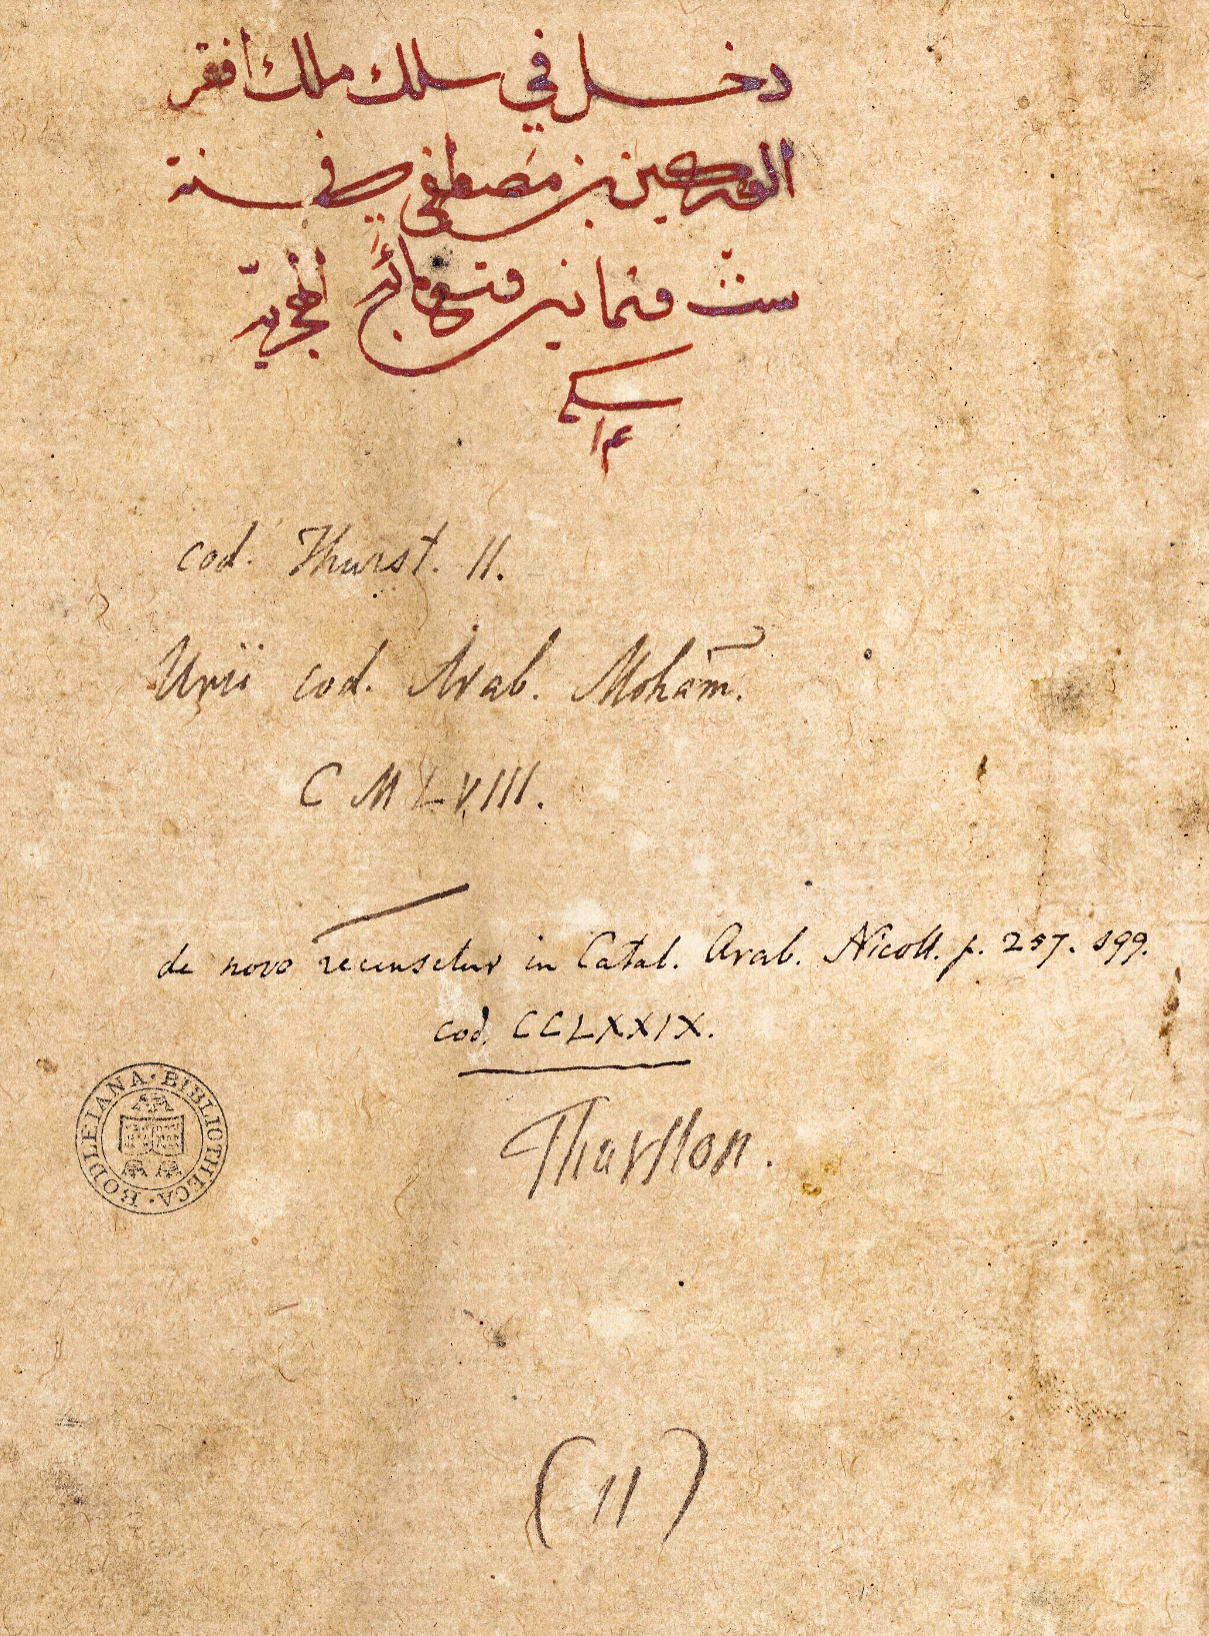 دخل في سلك ملك افقر
الورى حسين بن مصطفى في سنة
ست وثمانين وتسعمائة الهجرية
cod. Thurst. 11.
Urii cod. Arab. Moham̃.
CMLVIII.
de novo recensetur in Catal. Arab. Nicoll. p. 257. 599.
cod. CCLXXIX.
BIBLIOTHECA · BODLEIANA
Thurston.
(11)